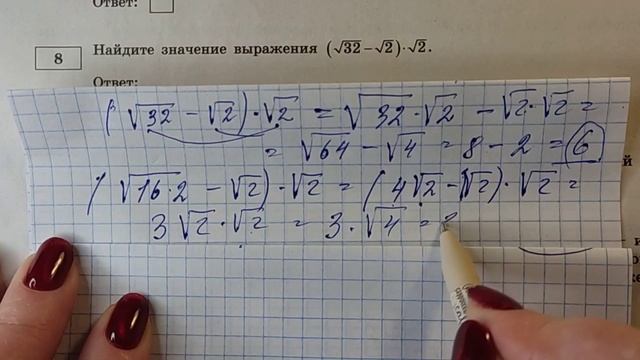 Ответ:
8 Найдите значение выражения (√32 − √2)·√2.
Ответ:
(√32 − √2)·√2 = √32·√2 − √2·√2 =
= √64 − √4 = 8 − 2 = 6
(√16·2 − √2)·√2 = (4√2 − 1√2)·√2 =
3√2·√2 = 3·√4 =